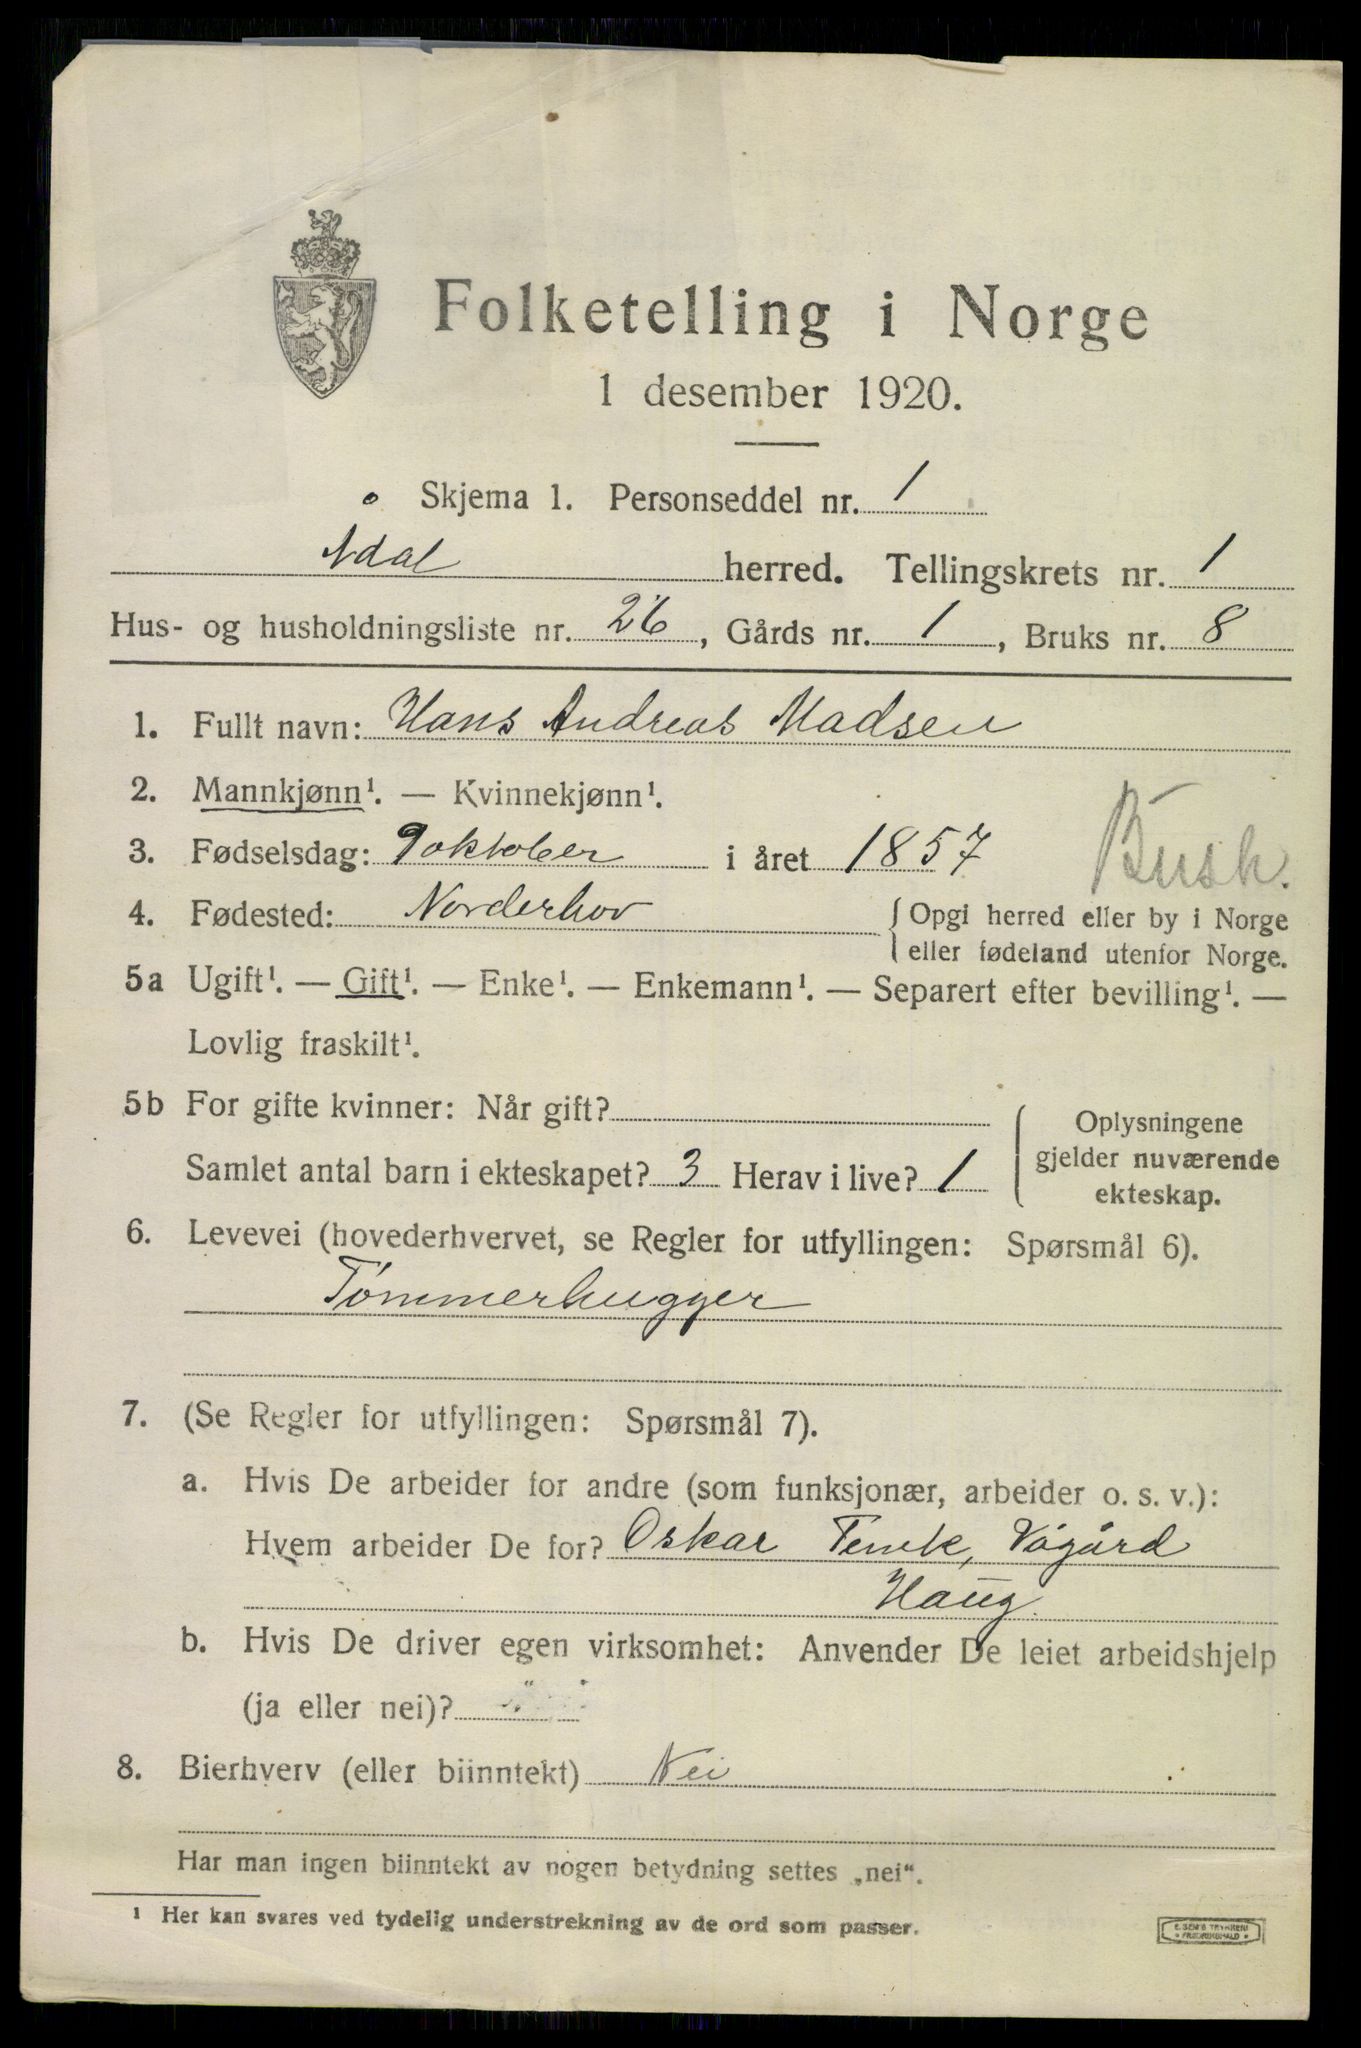 Folketelling i Norge
1 desember 1920.
Skjema 1. Personseddel nr. 1
Ådal herred. Tellingskrets nr. 1
Hus- og husholdningsliste nr. 26, Gårds nr. 1, Bruks nr. 8
1. Fullt navn: Hans Andreas Madsen
2. Mannkjønn¹. — Kvinnekjønn¹.
3. Fødselsdag: 9 oktober i året 1857
Busk.
4. Fødested: Norderhov {Opgi herred eller by i Norge
eller fødeland utenfor Norge.
5a Ugift¹. — Gift¹. — Enke¹. — Enkemann¹. — Separert efter bevilling¹. —
Lovlig fraskilt¹.
5b For gifte kvinner: Når gift?
Samlet antal barn i ekteskapet? 3 Herav i live? 1
Oplysningene
gjelder nuværende
ekteskap.
6. Levevei (hovederhvervet, se Regler for utfyllingen: Spørsmål 6).
Tømmerhugger
7. (Se Regler for utfyllingen: Spørsmål 7).
a. Hvis De arbeider for andre (som funksjonær, arbeider o. s. v.):
Hvem arbeider De for? Oskar Vågård
Haug.
b. Hvis De driver egen virksomhet: Anvender De leiet arbeidshjelp
(ja eller nei)?
8. Bierhverv (eller biinntekt) Nei
Har man ingen biinntekt av nogen betydning settes „nei“.
¹ Her kan svares ved tydelig understrekning av de ord som passer.